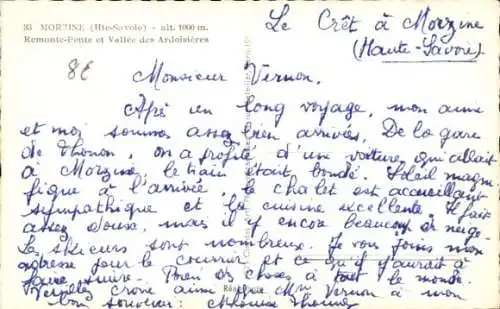 33 MORZINE (Hte-Savoie) - alt. 1000 m.
Remonte-Pente et Vallée des Ardoisières
8€
Le Crêt à Morzine
(Haute-Savoie)
Monsieur Vernon.
Apré un long voyage, mon amie
et moi sommes assez bien arrivées. De la gare
de Thonon, on a profité d'une voiture qui allait
à Morzine, le train était bondé. Soleil magni
fique à l'arrivée, le chalet est accueillant
sympathique et la cuisine excellente. Il fait
assez doux, mais il y encore beaucoup de neige.
Les skieurs sont nombreux. Je vous joins mon
adresse pour le courrier et ce qu'il y aurait à
faire suivre. Bien des choses à tout le monde.
Versailles crone ainsi que Mme Vernon à mon
bon souvenir.